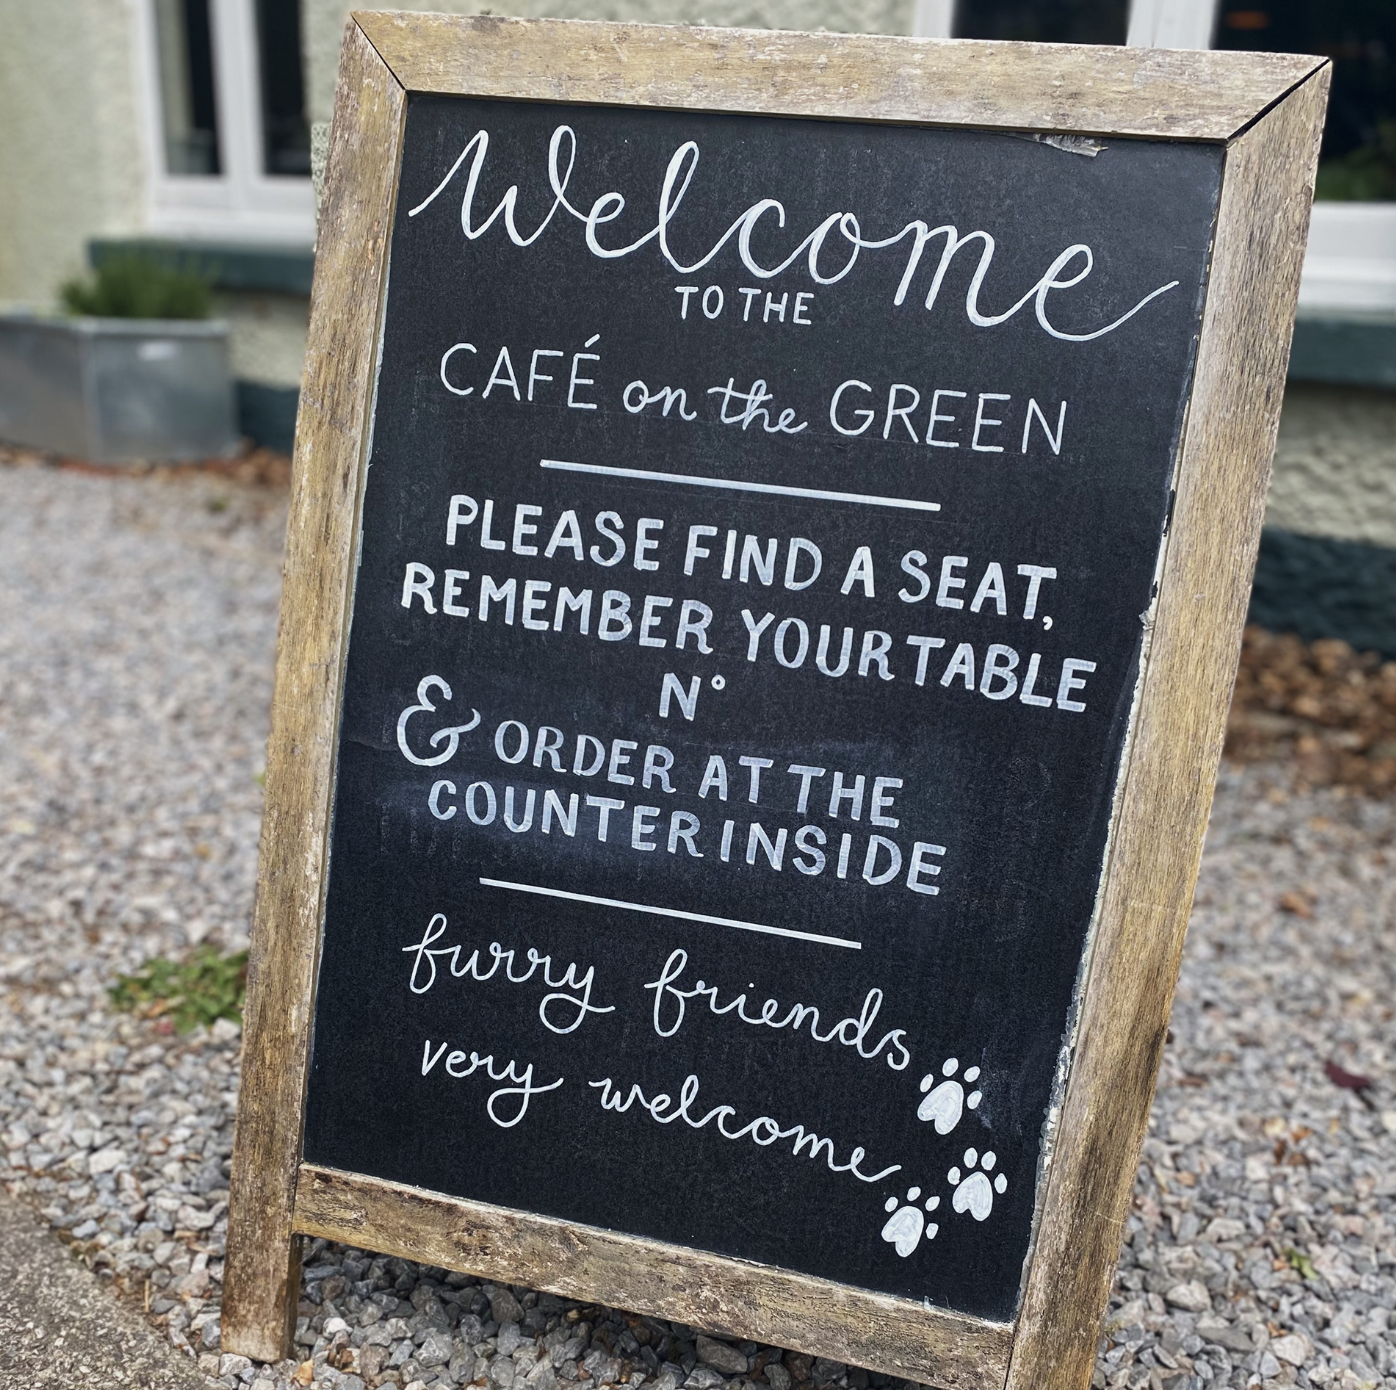 Welcome
TO THE
CAFÉ on the GREEN
PLEASE FIND A SEAT,
REMEMBER YOUR TABLE
N°
& ORDER AT THE
COUNTER INSIDE
furry friends
very welcome